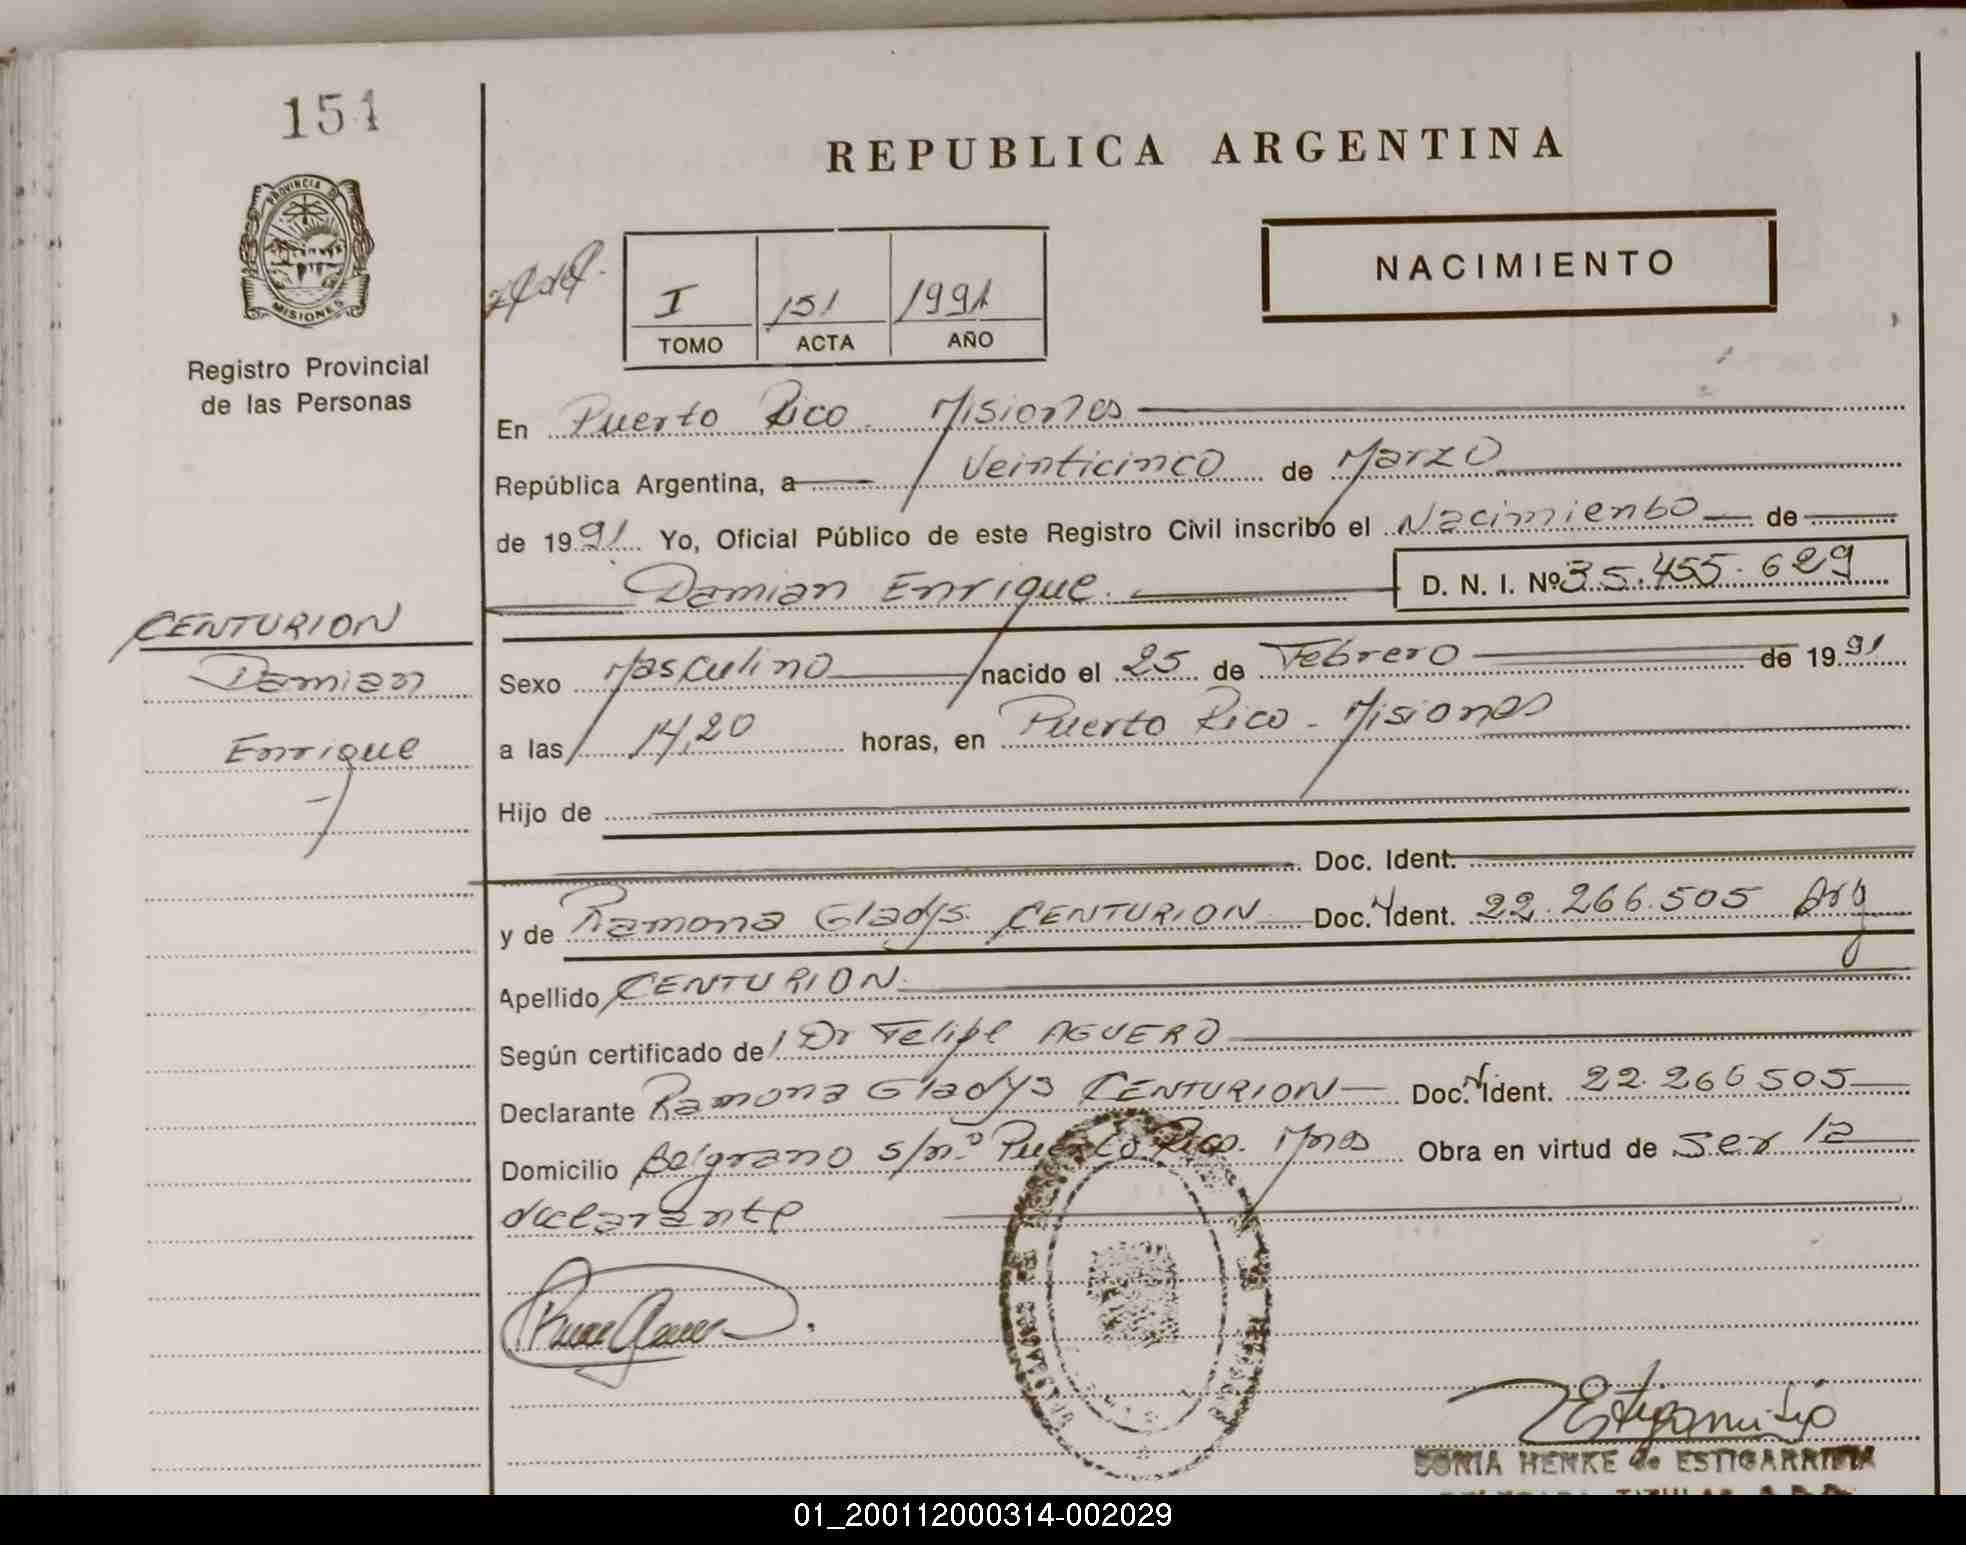 151
REPUBLICA ARGENTINA
PROVINCIA DE
MISIONES
NACIMIENTO
I 151 1991
TOMO ACTA AÑO
Registro Provincial
de las Personas
En Puerto Rico Misiones
República Argentina, a Veinticinco de Marzo
de 1991 Yo, Oficial Público de este Registro Civil inscribo el Nacimiento de
Damian Enrique. D. N. I. Nº 35.455.629
CENTURION
Damian
Enrique
Sexo Masculino nacido el 25 de Febrero de 1991
a las 14,20 horas, en Puerto Rico - Misiones
Hijo de
Doc. Ident.
y de Ramona Gladys CENTURION Doc. Ident. 22.266.505 Arg
Apellido CENTURION
Según certificado de Dr Felipe AGUERO
Declarante Ramona Gladys CENTURION Doc. Ident. 22.266505
Domicilio Belgrano s/nº Puerto Rico. Mnes Obra en virtud de ser la
declarante
SONIA HENKE de ESTIGARRIBIA
01_200112000314-002029